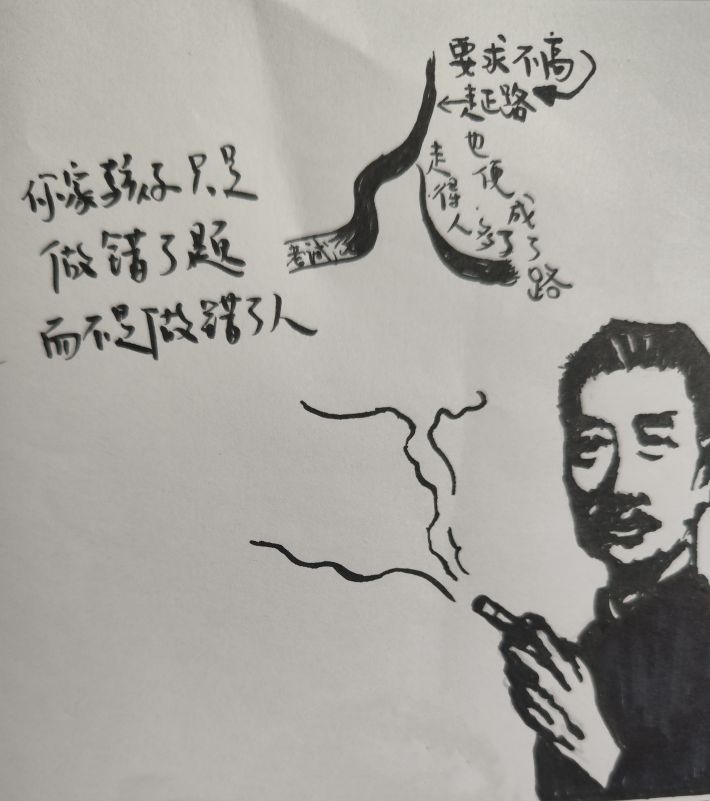 你家孩子只是
做错了题
而不是做错了人
要求不高
走正路
走得人多了
也便成了路
考试